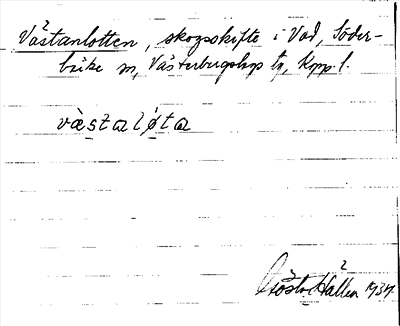 Västanlotten, skogsskifte i Vad, Söder-
bärke sn, Västerbergslags tg, Kpp. l.
væstaløta
Gösta Hallen 1934.